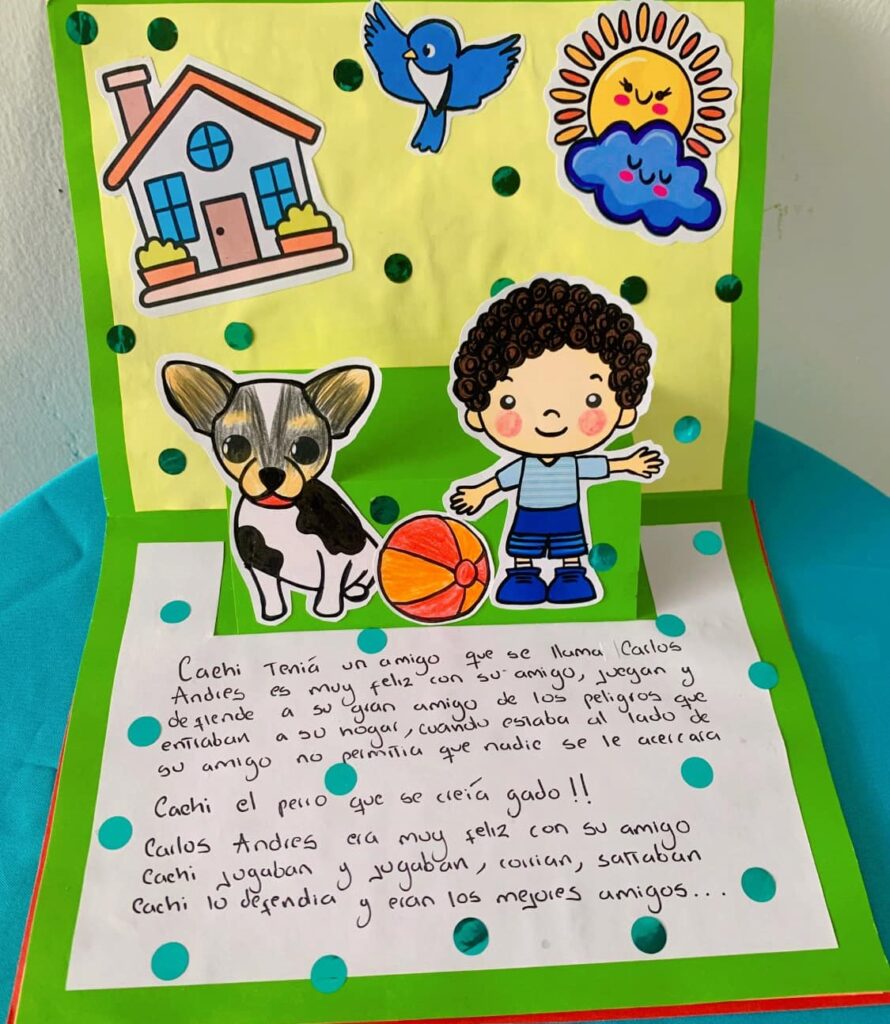 Cachi Teniá un amigo que se llama Carlos
Andres es muy feliz con su amigo, juegan y
defiende a su gran amigo de los peligros que
entraban a su hogar, cuando estaba al lado de
su amigo no permitia que nadie se le acercara
Cachi el perro que se creía gado!!
Carlos Andres era muy feliz con su amigo
Cachi jugaban y jugaban, corrian, saltaban
Cachi lo defendia y eran los mejores amigos...